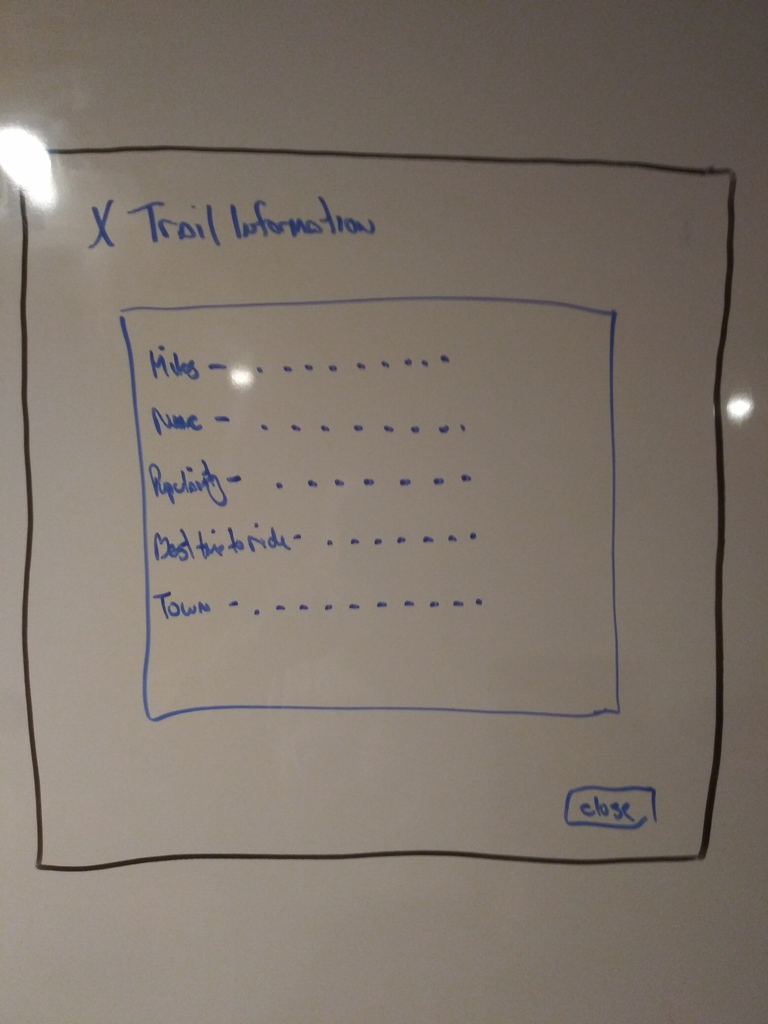 X Trail Information
Miles - . . . . . . . . .
Name - . . . . . . . .
Popularity - . . . . . . .
Best time to ride - . . . . . . .
Town - . . . . . . . . . .
close